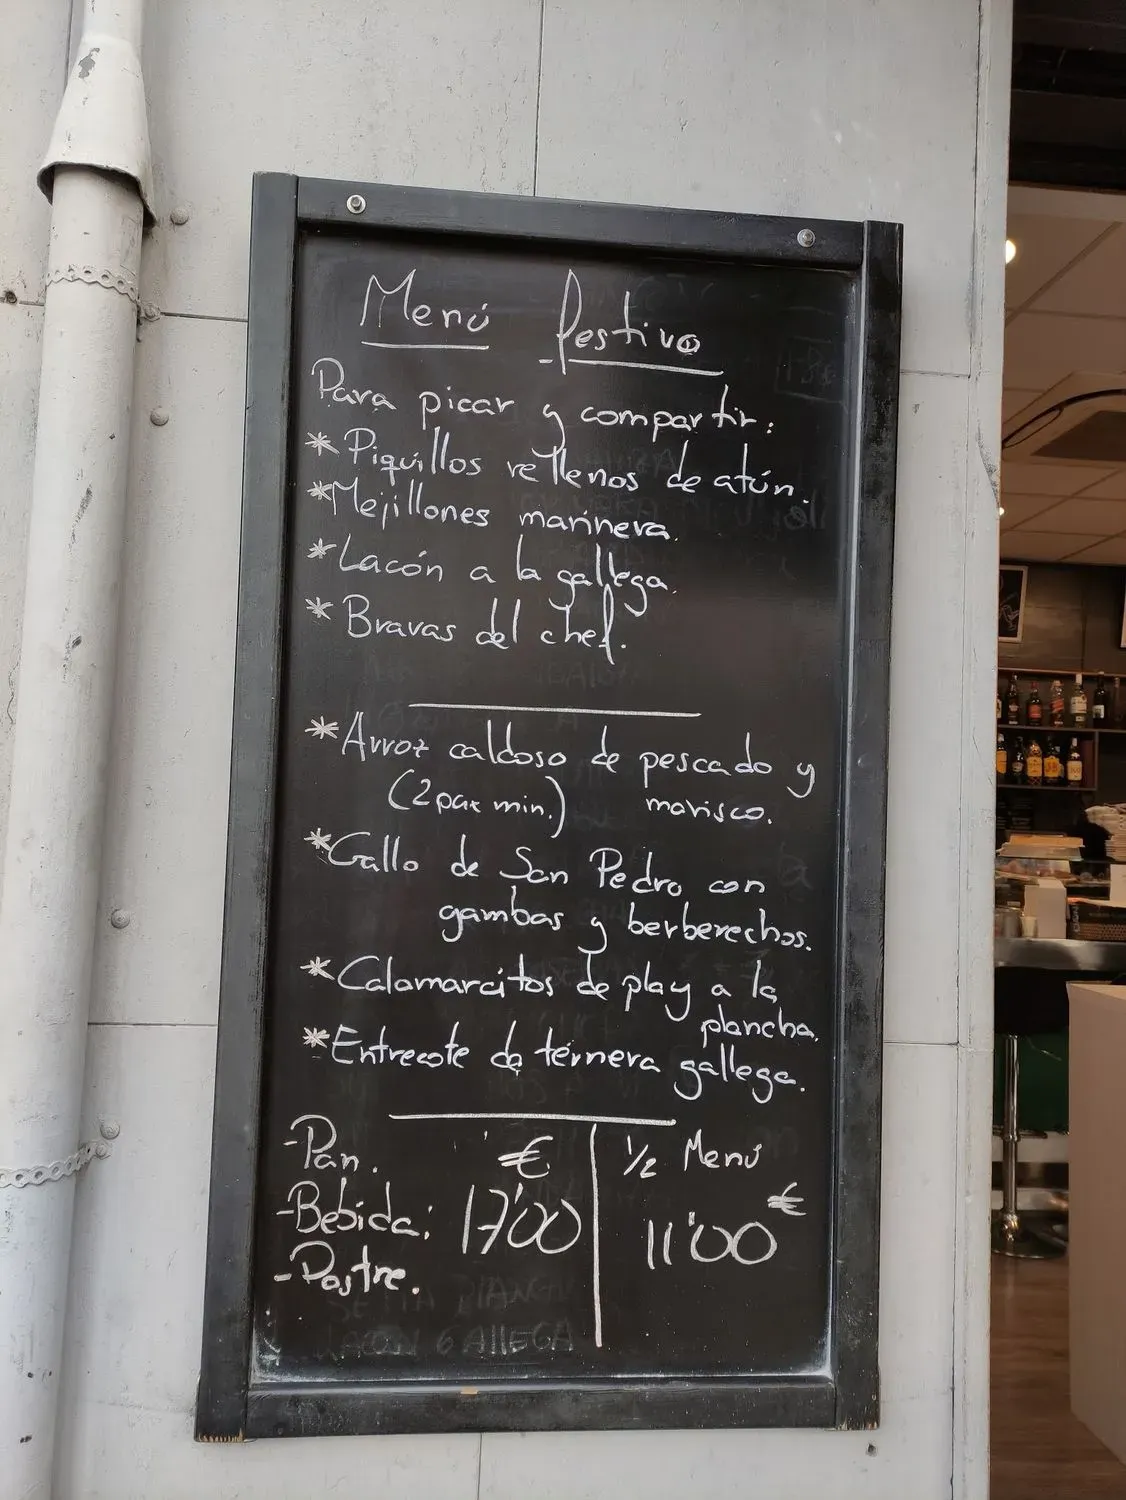 Menú festivo
Para picar y compartir:
* Piquillos rellenos de atún.
* Mejillones marinera.
* Lacón a la gallega.
* Bravas del chef.
* Arroz caldoso de pescado y
(2 pax min.) marisco.
* Gallo de San Pedro con
gambas y berberechos.
* Calamarcitos de play a la
plancha.
* Entrecote de ternera gallega.
-Pan. € ½ Menú
-Bebida: 17'00 11'00 €
-Postre.
LACON GALLEGA